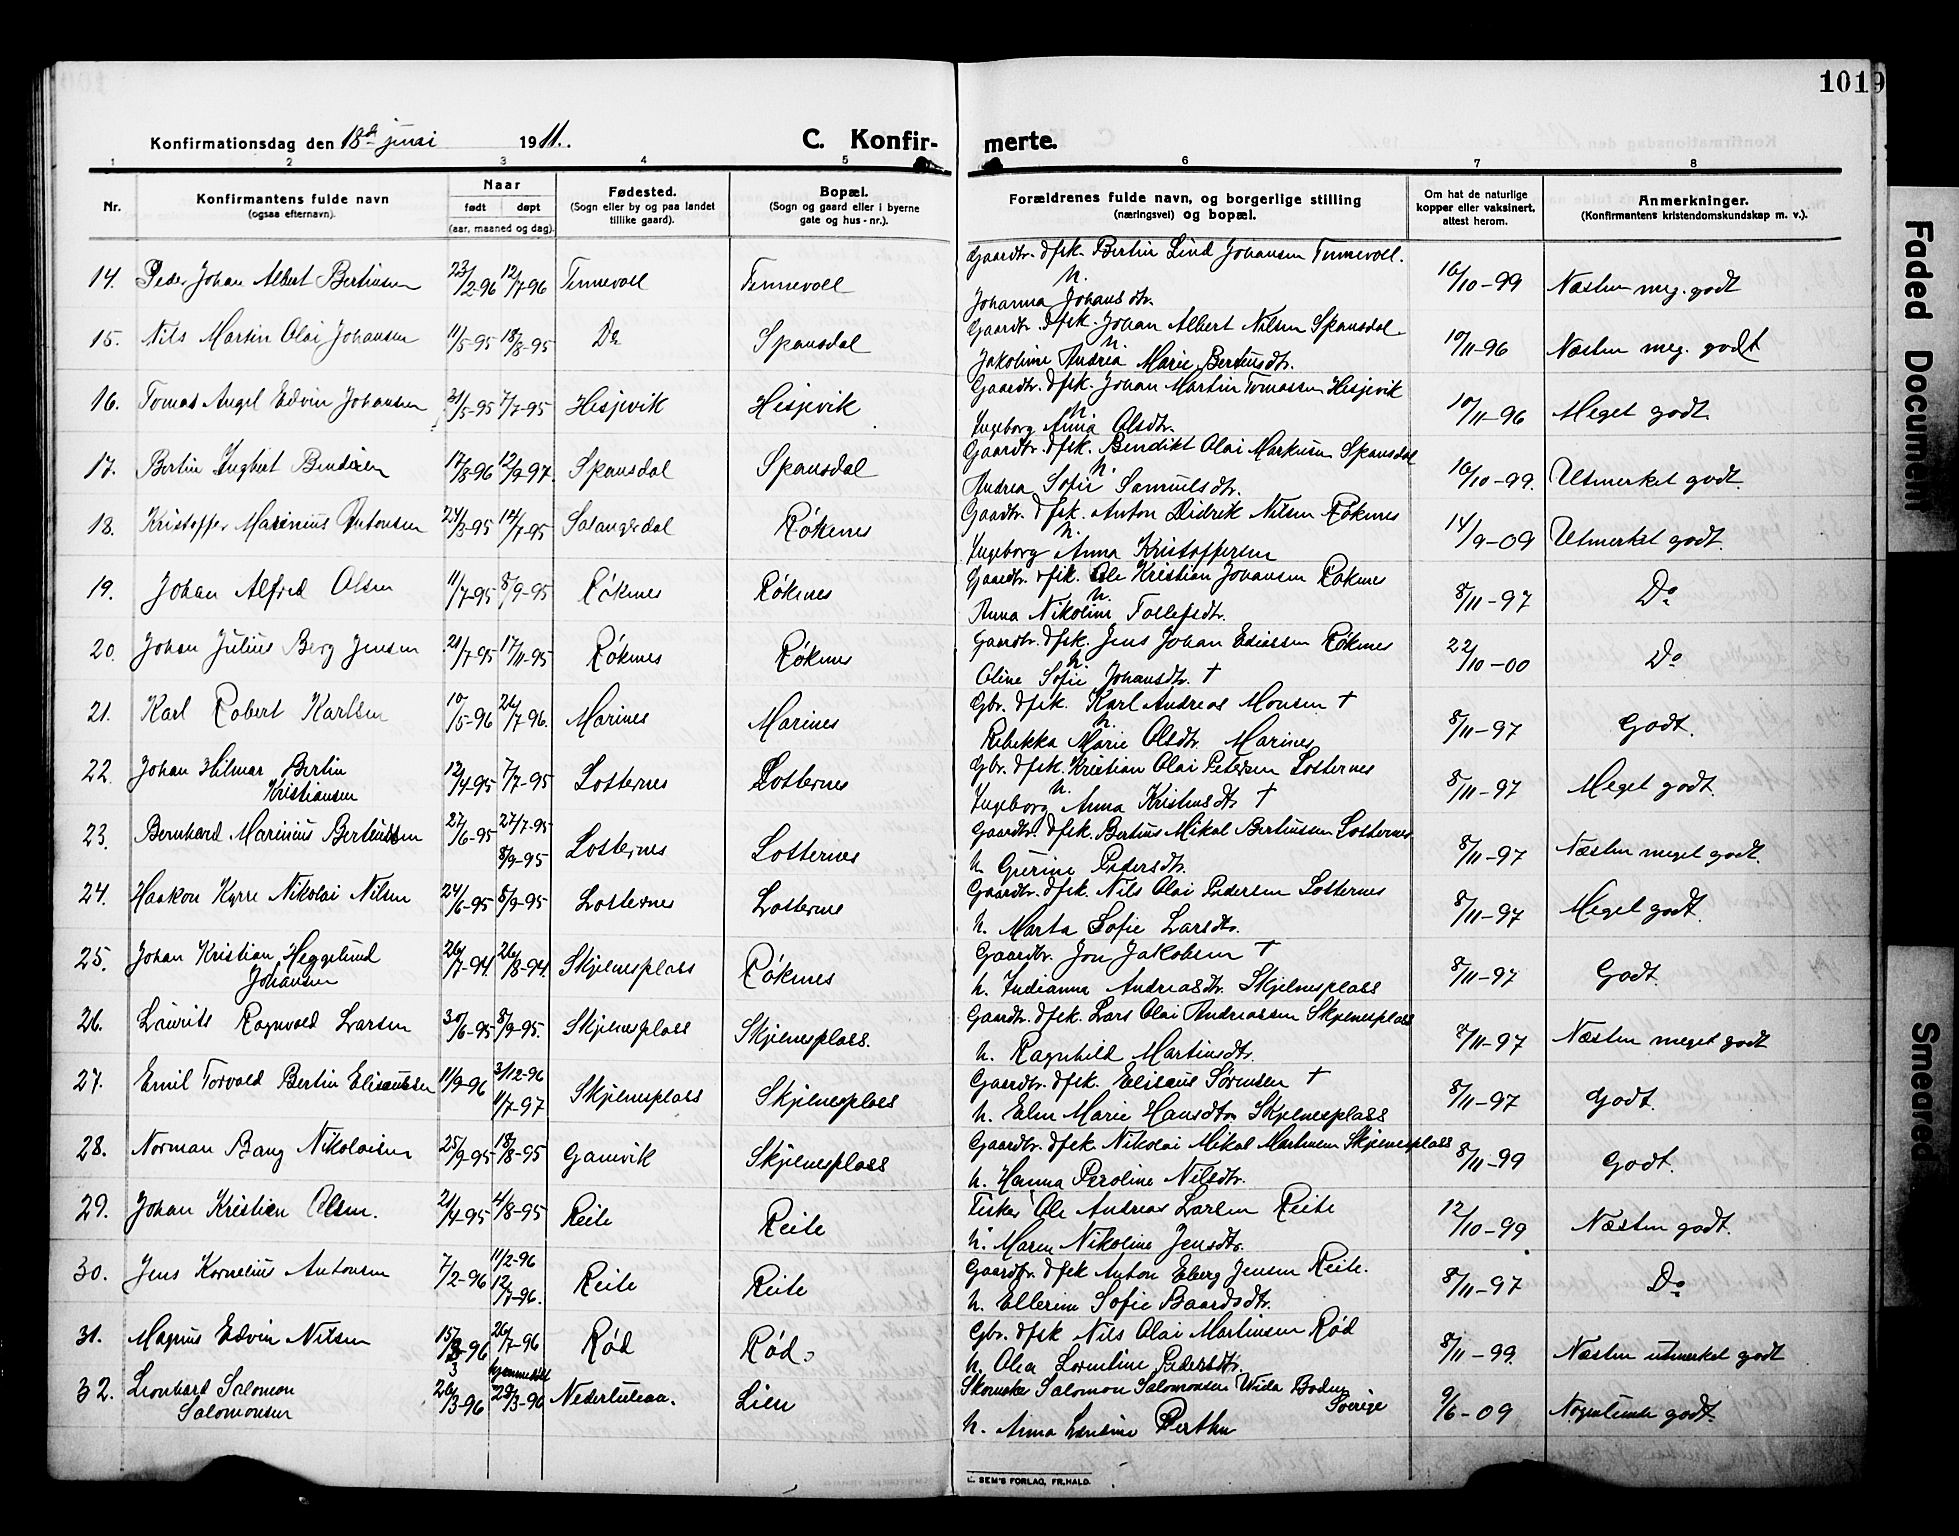 1019
Konfirmationsdag den 18de juni 1911.
C. Konfirmerte.
1 2 3 4 5 6 7 8
Nr.
Konfirmantens fulde navn (ogsaa efternavn).
Naar født døpt (aar, maaned og dag).
Fødested. (Sogn eller by og paa landet tillike gaard).
Bopæl. (Sogn og gaard eller i byerne gate og hus-nr.).
Forældrenes fulde navn, og borgerlige stilling (næringsvei) og bopæl.
Om hat de naturlige kopper eller vaksinert, attest herom.
Anmerkninger. (Konfirmantens kristendomskundskap m. v.).
14. Peder Johan Albert Bertinsen 23/2-96 12/7-96 Tennevoll Tennevoll Gaardbr. dfsk. Bertin Lind Johansen Tennevoll. 16/10-99 Næsten meg. godt
h. Johanna Johansdtr.
15. Nils Martin Olai Johansen 11/5-95 18/8-95 Do Spansdal Gaardbr. dfsk. Johan Albert Nilsen Spansdal 10/11-96 Næsten meg. godt
h. Jakobine Andrea Marie Bertinsdtr.
16. Tomas Angel Edvin Johansen 31/5-95 7/7-95 Hesjevik Hesjevik Gaardbr. dfsk. Johan Martin Tomassen Hesjevik 10/11-96 Meget godt
h. Ingeborg Anna Olsdtr.
17. Bertin Ingbert Bendiksen 17/8-96 12/9-97 Spansdal Spansdal Gaardbr. dfsk. Bendikt Olai Markusen Spansdal 16/10-99. Utmerket godt.
h. Andrea Sofie Samuelsdtr.
18. Kristoffer Marinius Antonsen 24/3-95 14/7-95 Salangsdal Røkenes Gaardbr. dfsk. Anton Didrik Nilsen Røkenes 14/9-09 Utmerket godt.
h. Ingeborg Anna Kristoffersen
19. Johan Alfred Olsen 11/7-95 8/9-95 Røkenes Røkenes Gaardbr. dfsk. Ole Kristian Johansen Røkenes 8/11-97 Do
h. Anna Nikoline Tollefsdtr.
20. Johan Julius Berg Jensen 21/7-95 17/11-95 Røkenes Røkenes Gaardbr. dfsk. Jens Johan Eliassen Røkenes 22/10-00 Do
h. Oline Sofie Johansdtr. †
21. Karl Robert Karlsen 10/5-96 26/7-96. Marines Marines Gbr. dfsk. Karl Andreas Monsen † 8/11-97 Godt.
h. Rebekka Marie Olsdtr. Marines
22. Johan Hilmar Bertin Kristiansen 12/4-95 7/7-95 Lotternes Lotternes Gbr. dfsk. Kristian Olai Petersen Lotternes 8/11-97 Meget godt.
h. Ingeborg Anna Kristensdtr †
23. Bernhard Marinius Bertinussen 27/6-95 27/7-95 8/9-95 Lotternes Lotternes Gaardbr. dfsk. Bertius Mikal Bertiussen Lotternes. 8/11-97 Næsten meget godt.
h. Gurine Pedersdtr.
24. Haakon Kyrre Nikolai Nilsen 24/6-95 8/9-95 Lotternes Lotternes Gaardbr. dfsk. Nils Olai Pedersen Lotternes 8/11-97 Meget godt.
h. Marta Sofie Larsdtr.
25. Johan Kristian Heggelund Johansen 26/7-94. 26/8-94. Skjelnesplass Røkenes Gaardbr. Jon Jakobsen † 8/11-97 Godt.
h. Indianna Andreasdtr. Skjelnesplass
26. Laurits Ragnvald Larsen 30/6-95 8/9-95. Skjelnesplass Skjelnesplass. Gaardbr. dfsk. Lars Olai Andreassen Skjelnesplass 8/11-97 Næsten meget godt
h. Ragnhild Martinsdtr.
27. Emil Torvald Bertin Eliseussen 11/9-96 3/12-96 11/7-97 Skjelnesplass Skjelnesplass Gaardbr. dfsk. Eliseus Sørensen † 8/11-97 Godt.
h. Elen Marie Hansdtr Skjelnesplass
28. Norman Bang Nikolaisen 25/9-95 18/8-95 Gamvik Skjelnesplass Gaardbr. dfsk. Nikolai Mikal Martinsen Skjelnesplass 8/11-99 Godt.
h. Hanna Peroline Nilsdtr.
29. Johan Kristian Olsen. 21/4-95 4/8-95 Reite Reite Fisker Ole Andreas Larsen Reite 12/10-99 Næsten godt.
h. Maren Nikoline Jensdtr.
30. Jens Kornelius Antonsen 7/2-96 11/2-96 12/7-96. Reite Reite Gaardbr. dfsk Anton Eberg Jensen Reite. 8/11-97 Do
h. Ellerine Sofie Baardsdtr.
31. Magnus Edvin Nilsen 15/3-96 3 26/7-96 Rød Rød Gbr. dfsk Nils Olai Martinsen Rød 8/11-99. Næsten utmerket godt
h. Olea Lorentine Pedersdtr.
32. Leonhard Salomon Salomonsen 20/3-96 hjemmedøbt 29/3-96 Nederluleaa. Lien Skomaker Salomon Salomonsen Wida Boden Sverige 9/6-09 Nogenlunde godt.
h. Anna Lovisine Perthu
E. SEM'S FORLAG, FR.HALD.
Faded Document
Smeared